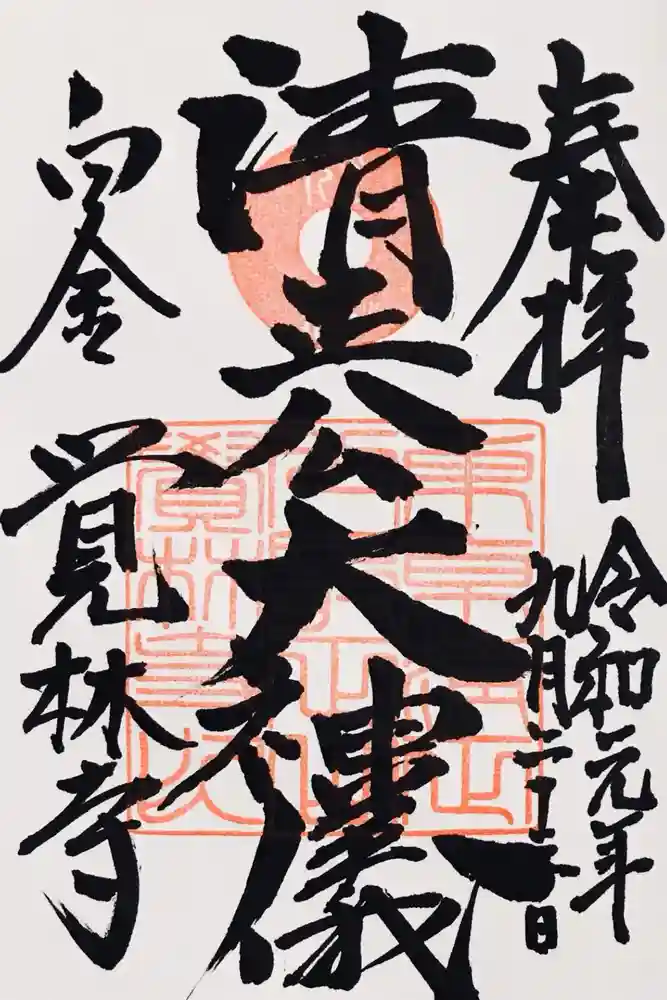 奉拝
令和元年
九月二十 日
清正公大神儀
白金
覚林寺